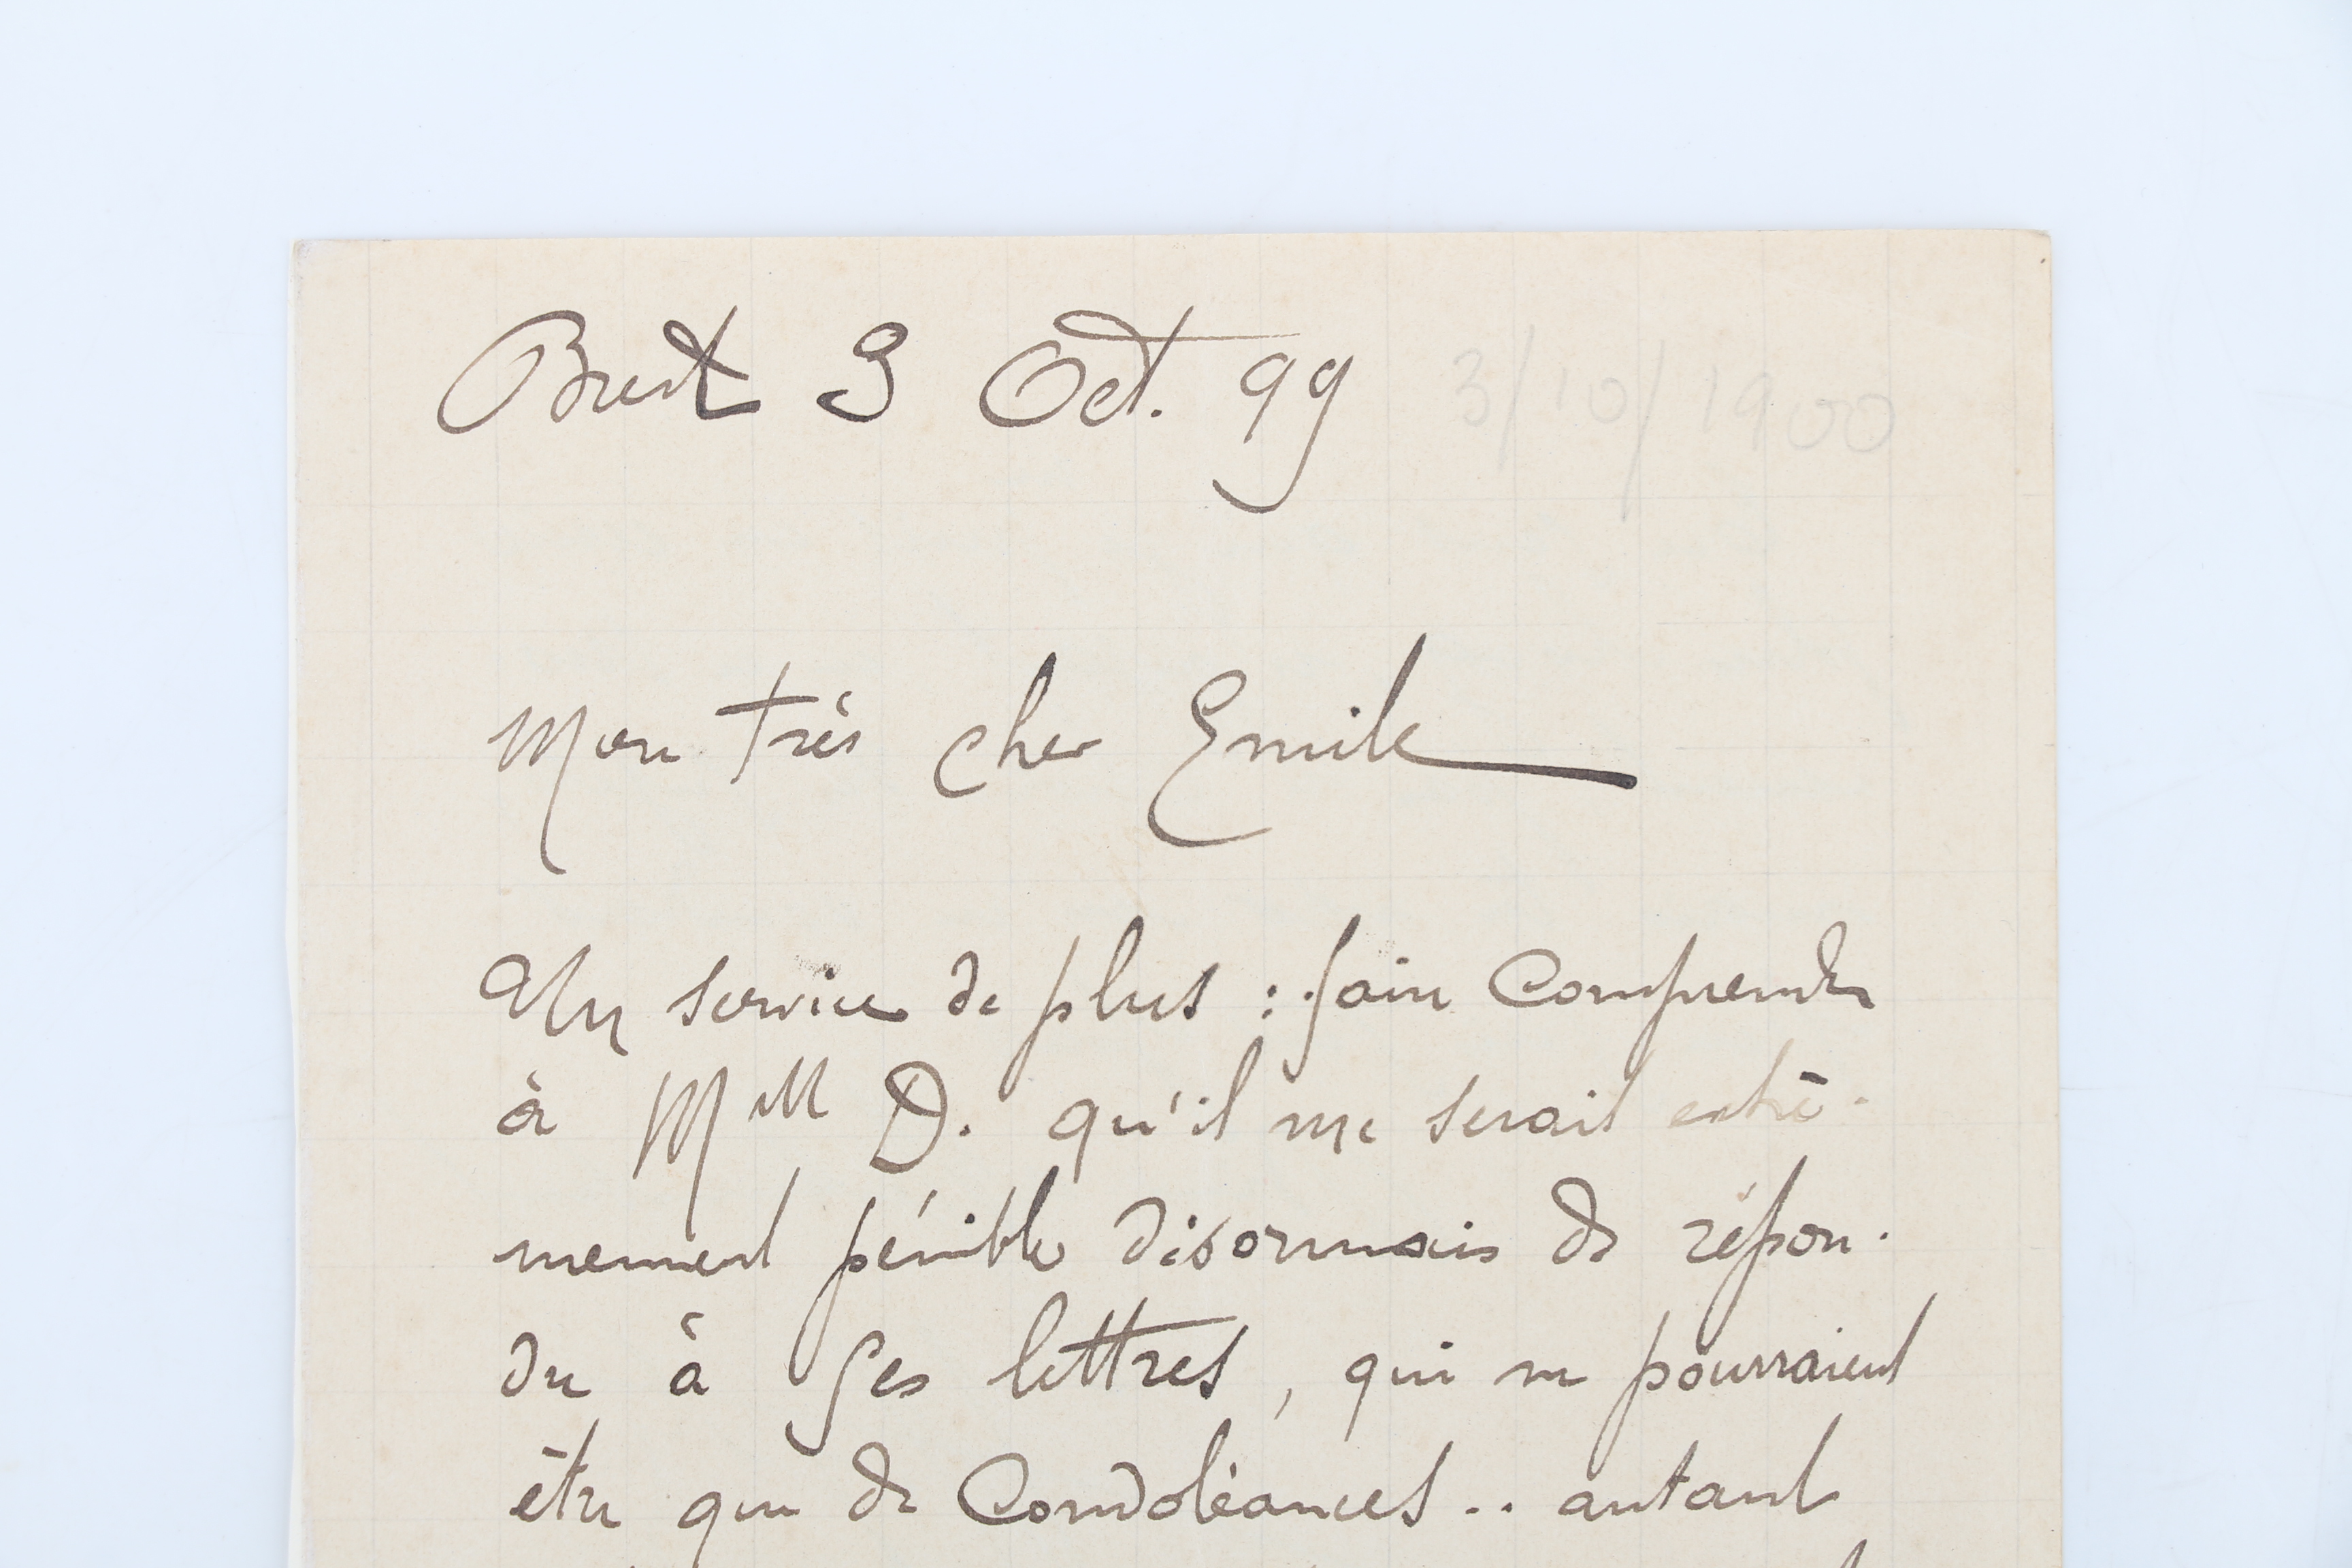 Brest 3 Oct. 99 3/10/1900
Mon très cher Emile
Un service de plus : faire comprendre
à Mlle D. qu'il me serait extrê-
mement pénible désormais de répon-
dre à ses lettres, qui ne pourraient
être que de Condoléances.. autant